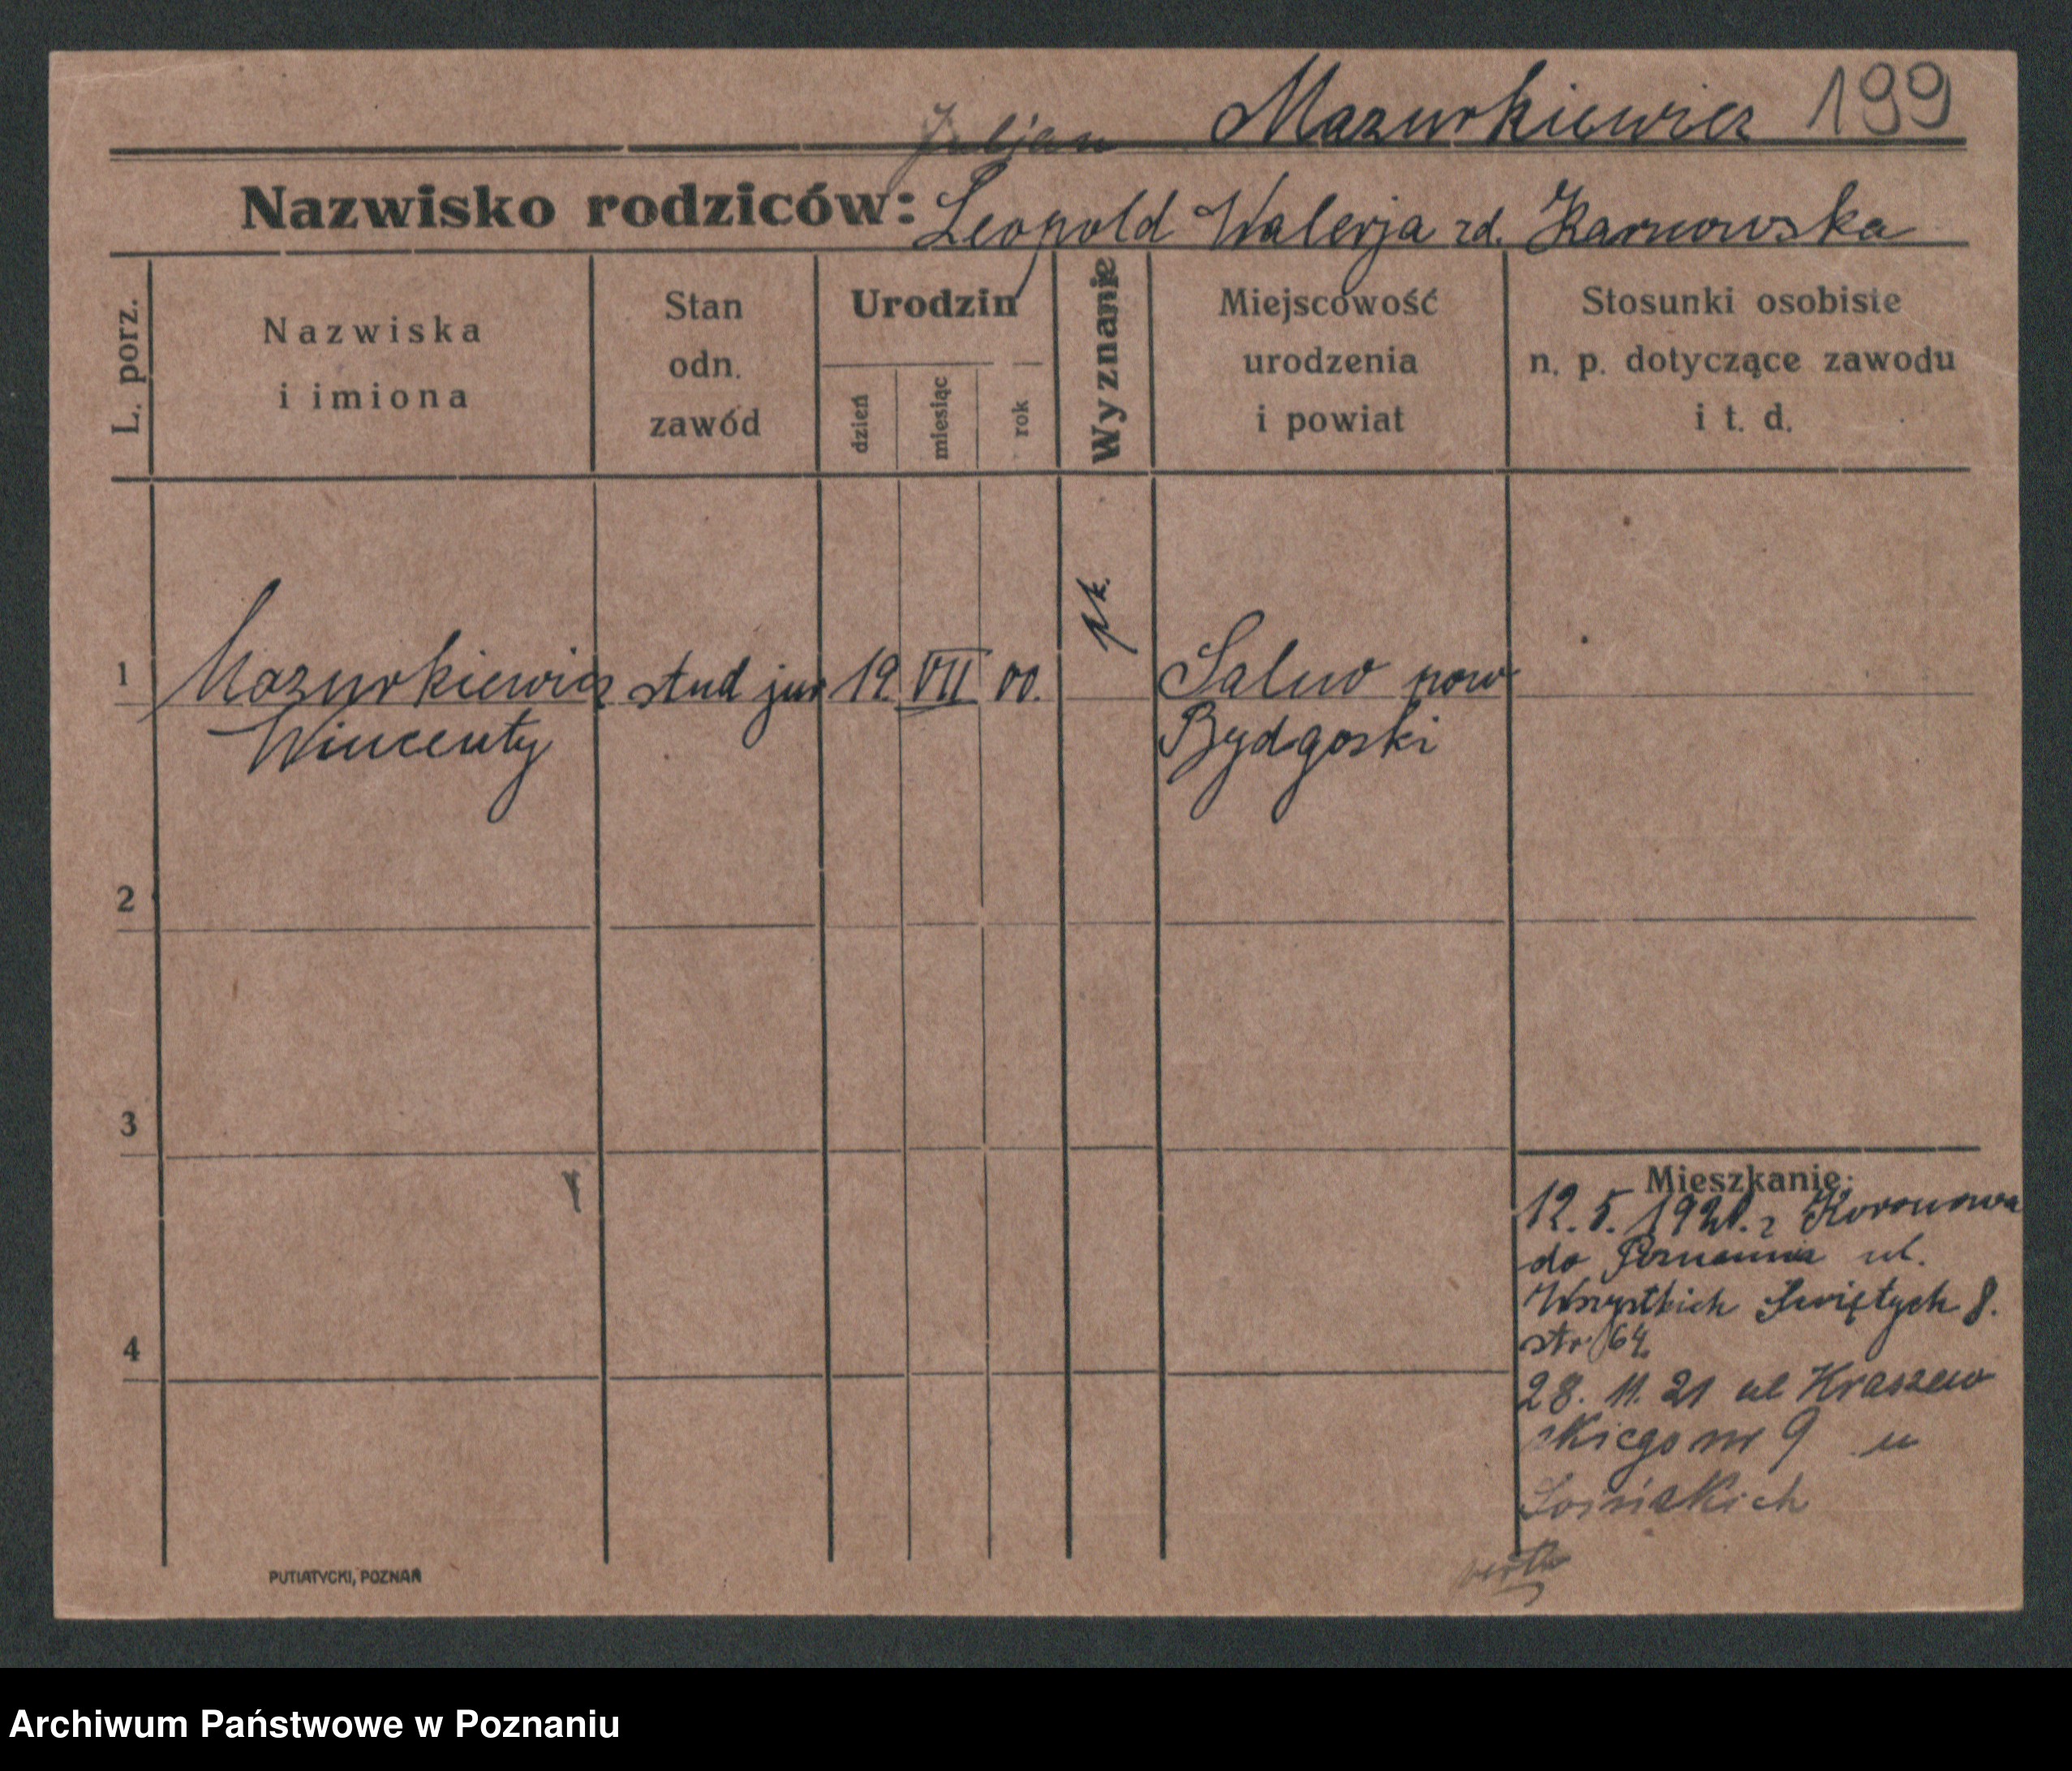 Juljan Mazurkiewicz 199
Nazwisko rodziców: Leopold Walerja zd. Karnowska
L. porz.
Nazwiska
i imiona
Stan
odn.
zawód
Urodzin
dzień
miesiąc
rok
Wyznanie
Miejscowość
urodzenia
i powiat
Stosunki osobiste
n. p. dotyczące zawodu
i t. d.
1 Mazurkiewicz stud jur 19. VII 00. rk. Salno pow
Wincenty Bydgoski
2
3
4
Mieszkanie:
12. 5. 1920. z Koronowa
do Poznania ul.
Wszystkich Świętych 8.
str. 64
28. 11. 21 ul Kraszew
skiego nr 9 u
PUTIATYCKI, POZNAŃ
Archiwum Państwowe w Poznaniu